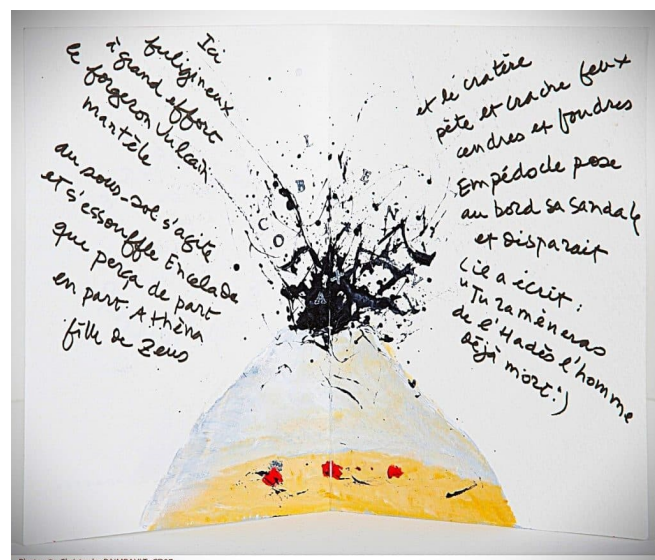 Ici
fuligineux
à grand effort
le forgeron Vulcain
martèle
au sous-sol s'agite
et s'essouffle Encelade
que perça de part
en part Athéna
fille de Zeus
et le cratère
pète et crache feux
cendres et foudres
Empédocle pose
au bord sa sandale
et disparait
(il a écrit :
"Tu ramèneras
de l'Hadès l'homme
déjà mort".)